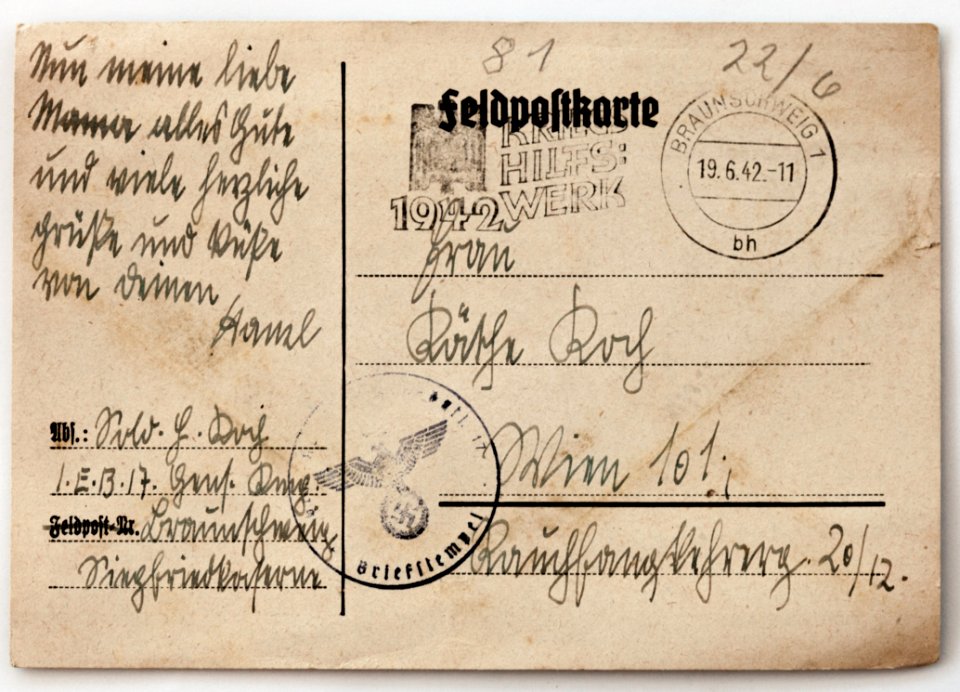 Nun meine liebe
Mama alles Gute
und viele herzliche
grüße und Küße
von deinen
Abs.: Sold. H. Koch
1. E. B. 17. Gens. Kmp.
Feldpost-Nr. Braunschweig
Siegfriedkaserne
81
22/6
Feldpostkarte
KRIEGS
HILFS:
WERK
1942
BRAUNSCHWEIG 1
19.6.42.-11
bh
Frau
Käthe Koch
Wien 101;
Rauchfangkehrerg. 20/12.
Briefstempel